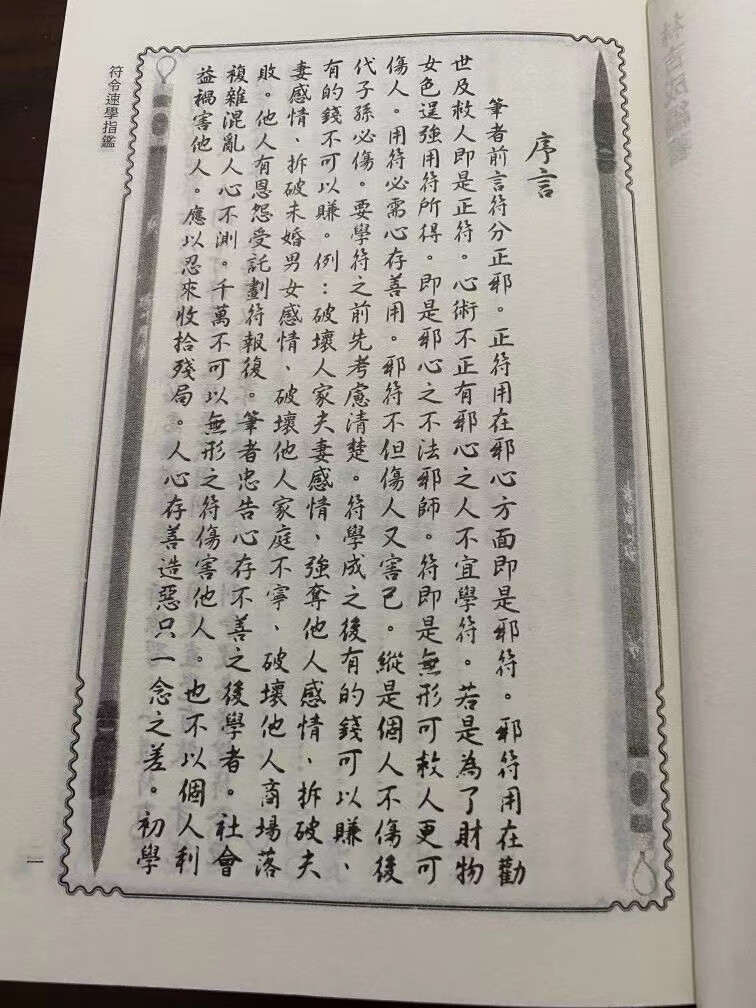 序言
筆者前言符分正邪。正符用在邪心方面即是邪符。邪符用在勸
世及救人即是正符。心術不正有邪心之人不宜學符。若是為了財物
女色逞強用符所得。即是邪心之不法邪師。符即是無形可救人更可
傷人。用符必需心存善用。邪符不但傷人又害己。縱是個人不傷後
代子孫必傷。要學符之前先考慮清楚。符學成之後有的錢可以賺、
有的錢不可以賺。例：破壞人家夫妻感情、強奪他人感情、拆破夫
妻感情、拆破未婚男女感情、破壞他人家庭不寧、破壞他人商場落
敗。他人有恩怨受託劃符報復。筆者忠告心存不善之後學者。社會
複雜混亂人心不測。千萬不可以無形之符傷害他人。也不以個人利
益禍害他人。應以忍來收拾殘局。人心存善造惡只一念之差。初學
符令速學指鑑
一